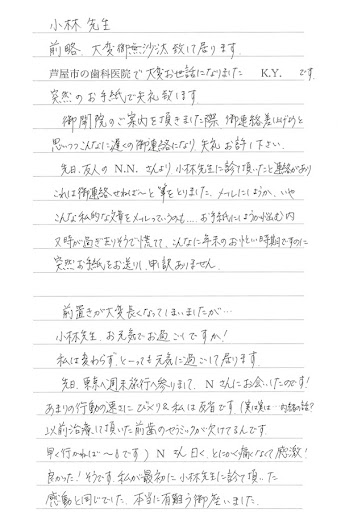 小林 先生
前略、大変御無沙汰致して居ります。
芦屋市の歯科医院で大変お世話になりました K.Y. です。
突然のお手紙で失礼致します
御開院のご案内を頂きました際、御連絡差し上げようと
思いつつこんなに遅くの御連絡になり 失礼お許し下さい。
先日、友人の N.N. さんより小林先生に診て頂いたと連絡があり
これは御連絡せねば〜と筆をとりました。メールにしようか、いや
こんな私的な文章をメールっていうのも....お手紙にしようか悩む内
又時が過ぎ去りそうで慌てて、こんなに年末のお忙しい時期ですのに
突然お手紙をお送りし申訳ありません。
前置きが大変長くなってしまいましたが…
小林先生、お元気でお過ごしですか!
私は変わらず、と〜っても元気に過ごして居ります。
先日、東京へ週末旅行へ参りまして、N さんにお会いしたのです!
あまりの行動の速さにびっくり&私は反省です(実は実は…内緒の話?
以前治療して頂いた前歯のセラミックが欠けてるんです
早く行かねば〜もです) N さん曰く、とにかく痛くなくて感激!
良かった!そうです。私が最初に小林先生に診て頂いた
感動と同じでした。本当に有難う御座いました。